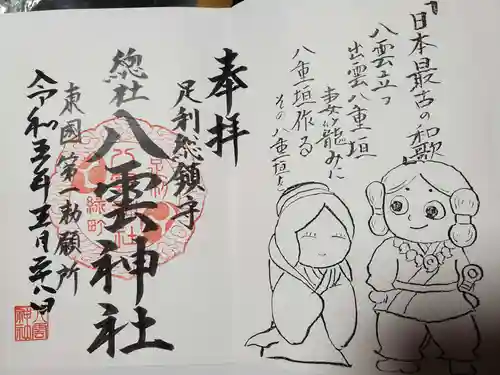 「日本最古の和歌」
八雲立つ
出雲八重垣
妻籠みに
八重垣作る
その八重垣を
奉拝
足利総鎮守
總社八雲神社
東國第一勅願所
令和五年五月廿八日
緑町